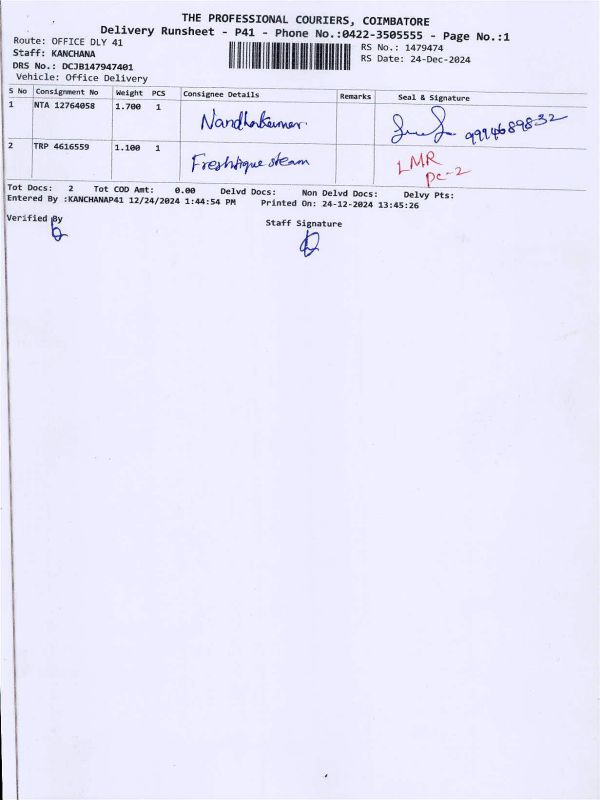 THE PROFESSIONAL COURIERS, COIMBATORE
Delivery Runsheet - P41 - Phone No.:0422-3505555 - Page No.:1
Route: OFFICE DLY 41
RS No.: 1479474
Staff: KANCHANA
RS Date: 24-Dec-2024
DRS No.: DCJB147947401
Vehicle: Office Delivery
S No Consignment No Weight PCS Consignee Details Remarks Seal & Signature
1 NTA 12764058 1.700 1 Nandhakumar 9994689832
2 TRP 4616559 1.100 1 Freshtique steam LMR
PC-2
Tot Docs: 2 Tot COD Amt: 0.00 Delvd Docs: Non Delvd Docs: Delvy Pts:
Entered By :KANCHANAP41 12/24/2024 1:44:54 PM Printed On: 24-12-2024 13:45:26
Verified By
Staff Signature